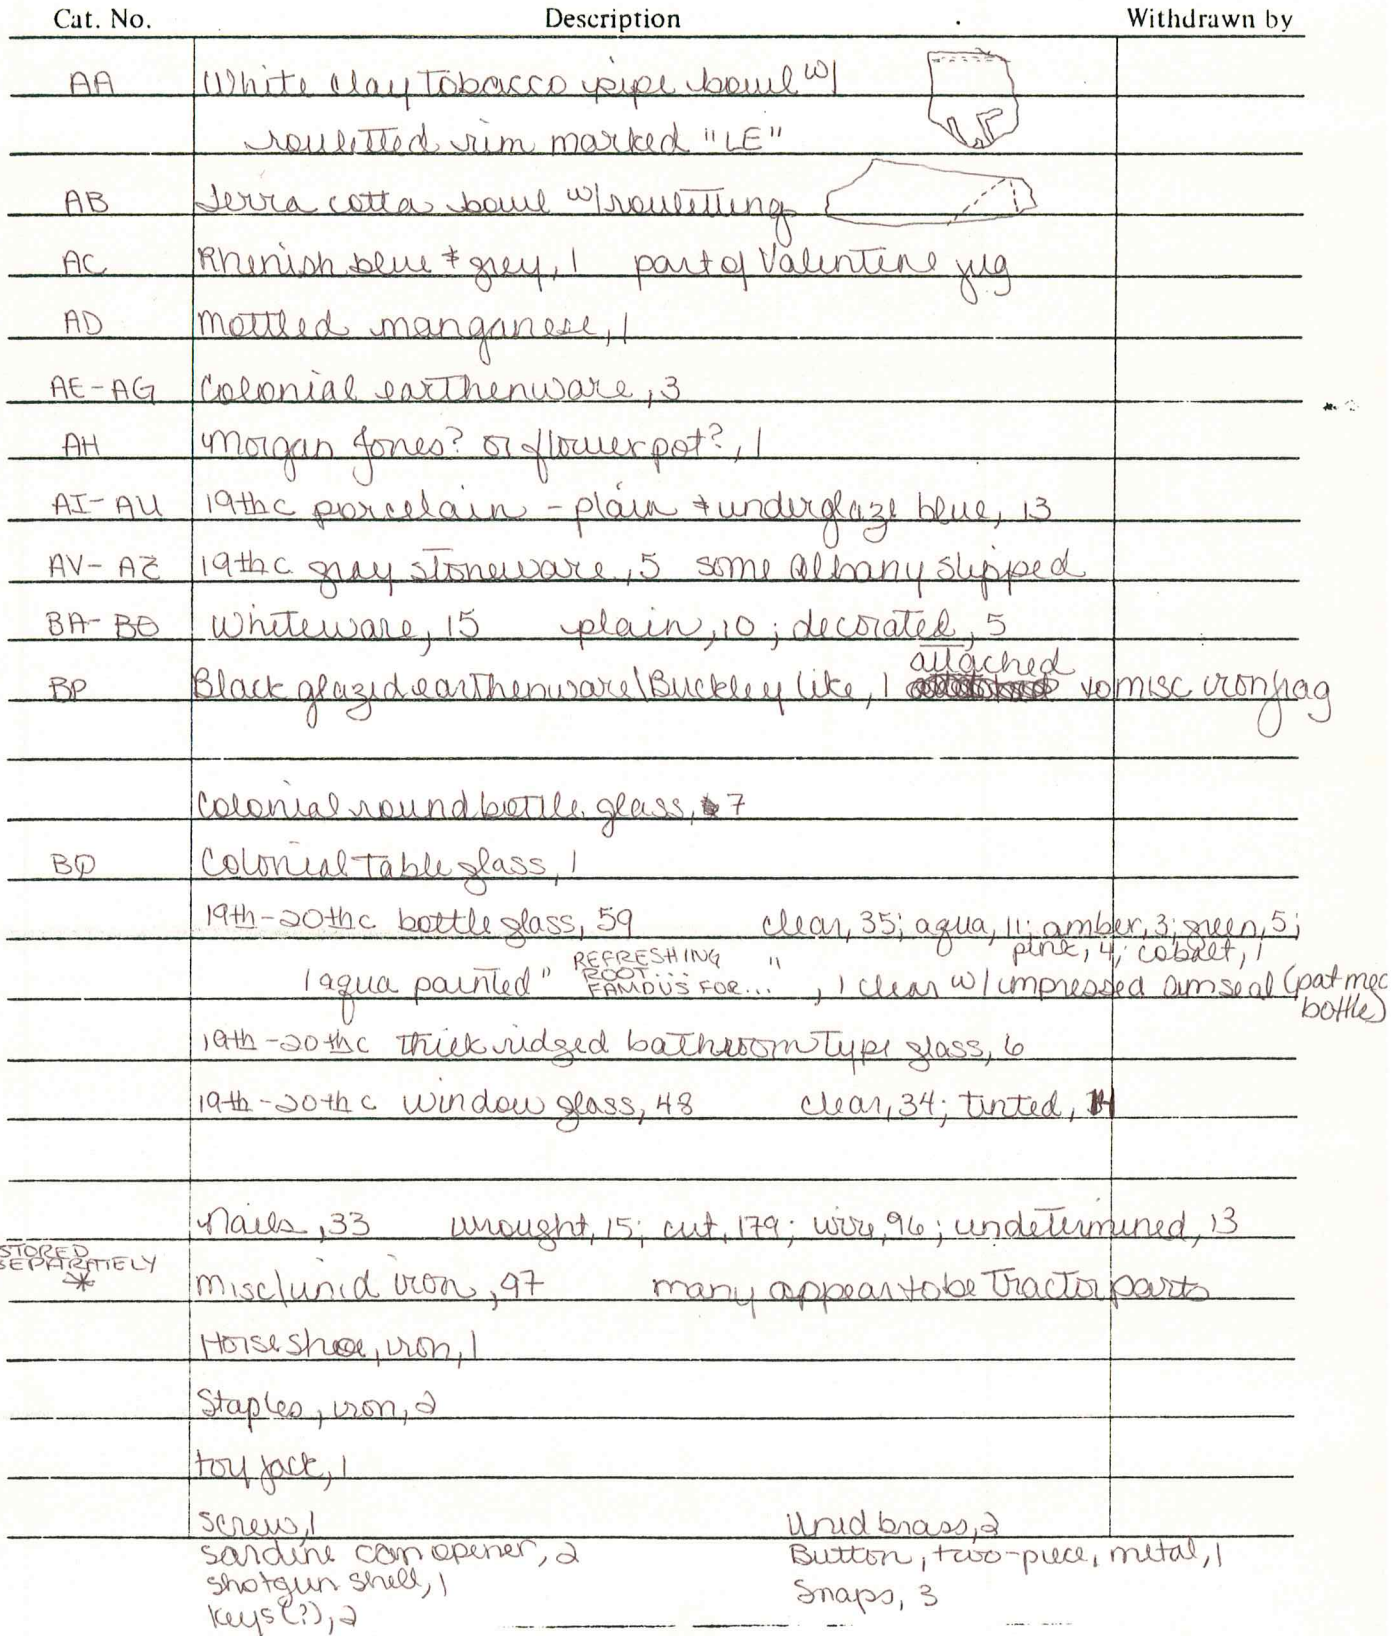 Cat. No. Description Withdrawn by
AA White clay tobacco pipe bowl w/
rouletted rim marked "LE"
LE
AB Terra cotta bowl w/rouletting
AC Rhenish blue & grey, 1 part of Valentine jug
AD Mottled manganese, 1
AE-AG Colonial earthenware, 3
AH Morgan Jones? or flowerpot?, 1
AI-AU 19th c porcelain - plain & underglaze blue, 13
AV-AZ 19th c. gray stoneware, 5 some Albany slipped
BA-BO Whiteware, 15 plain, 10; decorated, 5
BP Black glazed earthenware/Buckley like, 1 attached to misc iron frag
Colonial round bottle glass, 7
BQ Colonial table glass, 1
19th-20th c bottle glass, 59 clear, 35; aqua, 11; amber, 3; green, 5;
pink, 4; cobalt, 1
1 aqua painted " REFRESHING
ROOT...
FAMOUS FOR... " , 1 clear w/ impressed seal (pat med
bottle)
19th-20th c thick ridged bathroom type glass, 6
19th-20th c window glass, 48 clear, 34; tinted, 14
Nails, 33 wrought, 15; cut, 179; wire, 96; undetermined, 13
STORED
SEPARATELY
* Misc/unid iron, 97 many appear to be tractor parts
Horse shoe, iron, 1
Staples, iron, 2
toy jack, 1
screw, 1 Unid brass, 2
sardine can opener, 2 Button, two-piece, metal, 1
shotgun shell, 1 Snaps, 3
keys (?), 2